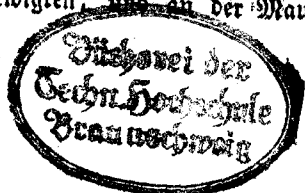 und an der Mau
Bücherei der
Techn. Hochschule
Braunschweig